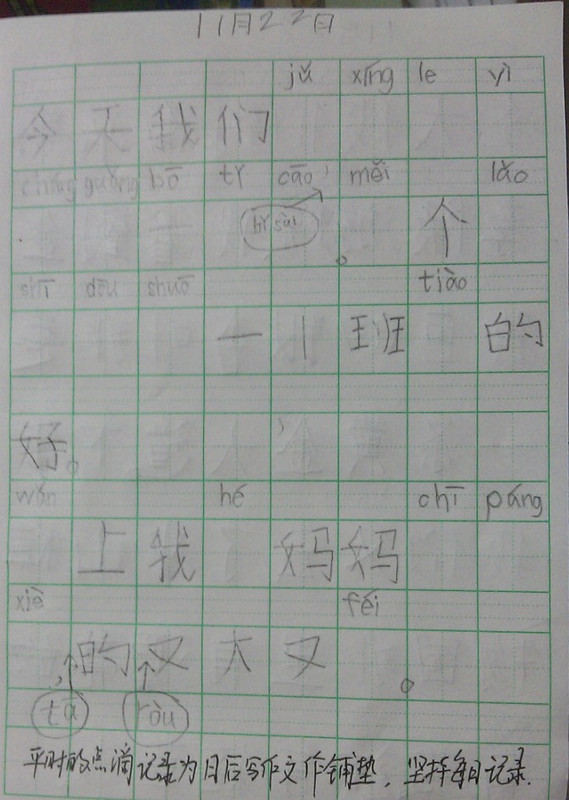 11月22日
jǔ xíng le yì
今天我们
chǎng guǎng bō tǐ cāo , měi lǎo
bǐ sài 。 个
shī dōu shuō tiào
一 1 班 的
好。
wǎn hé chī páng
上我 妈妈
xiè féi
, 的又大又 。
tā ròu
平时的点滴记录为日后写作文作铺垫，坚持每日记录.